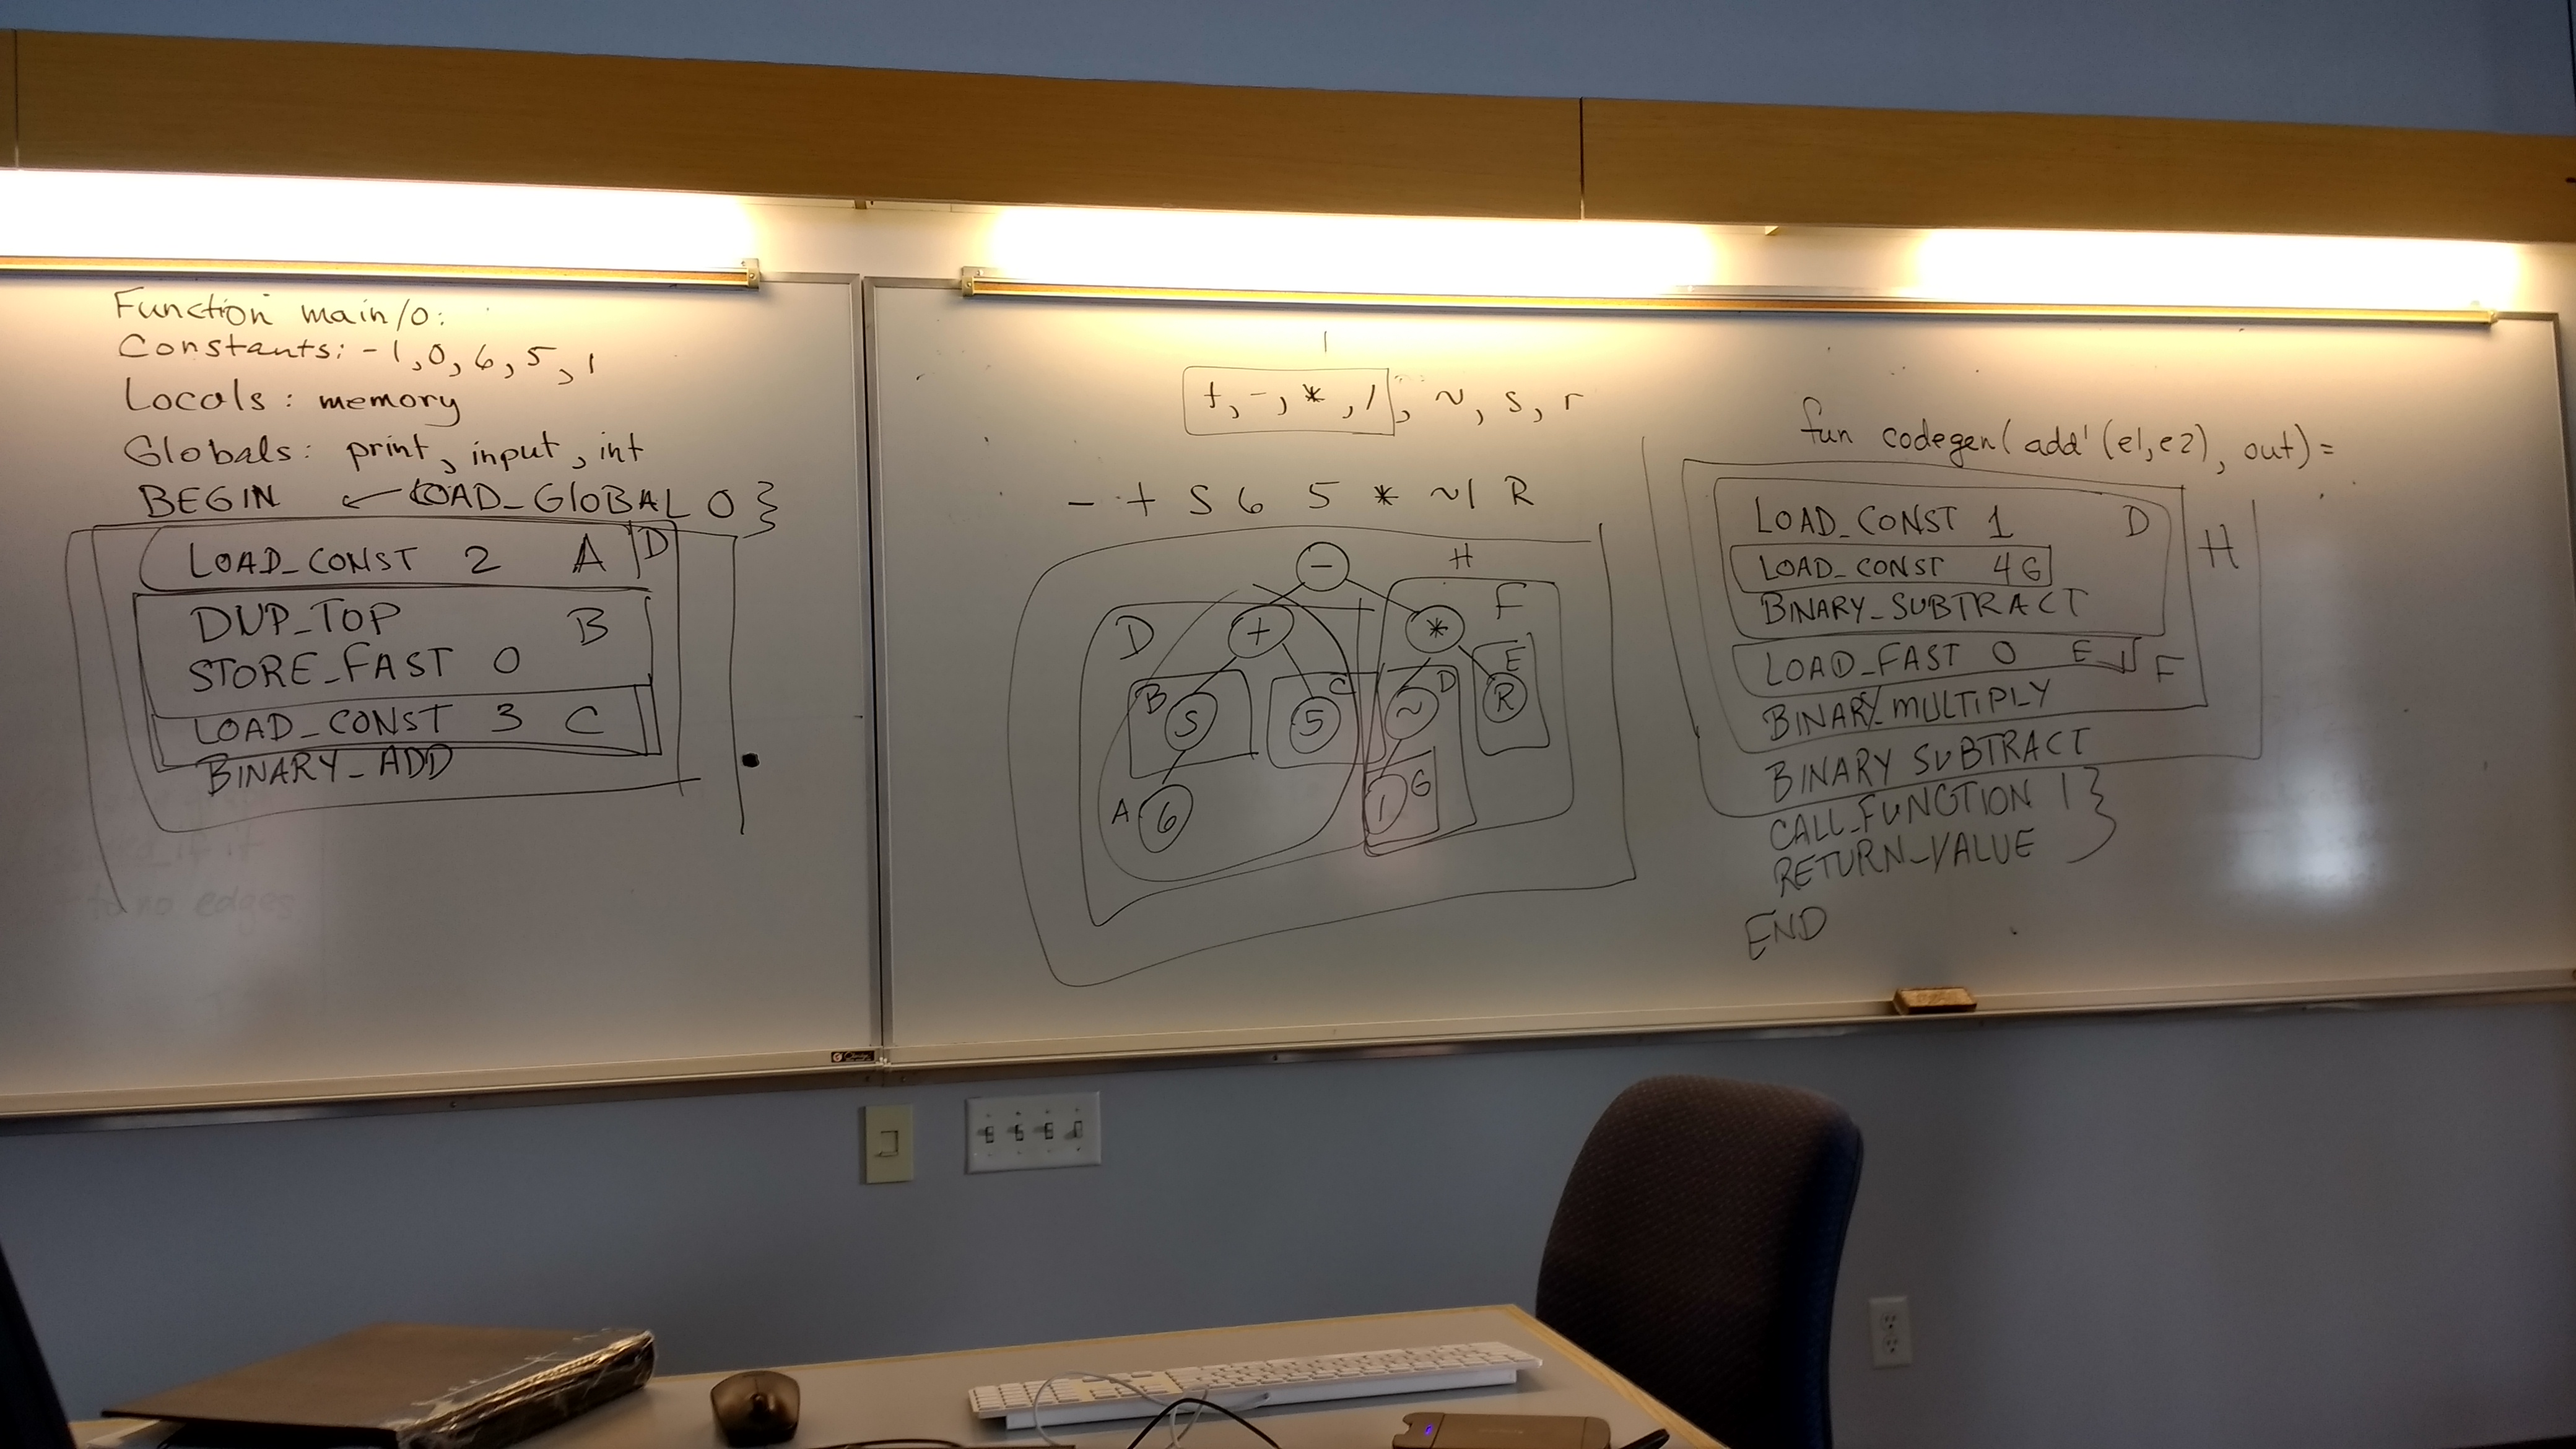 Function main/0:
Constants: -1, 0, 6, 5, 1
Locals: memory
Globals: print, input, int
BEGIN ← LOAD_GLOBAL 0 }
LOAD_CONST 2 A D
DUP_TOP B
STORE_FAST 0
LOAD_CONST 3 C
BINARY_ADD
to no edges
+, -, *, /, ~, s, r
- + S 6 5 * ~1 R
- H
D + * F
B S C 5 ~ D R E
A 6 1 G
fun codegen(add'(e1,e2), out) =
LOAD_CONST 1 D
LOAD_CONST 4 G H
BINARY_SUBTRACT
LOAD_FAST 0 E F
BINARY_MULTIPLY
BINARY SUBTRACT
CALL_FUNCTION 1 }
RETURN_VALUE
END